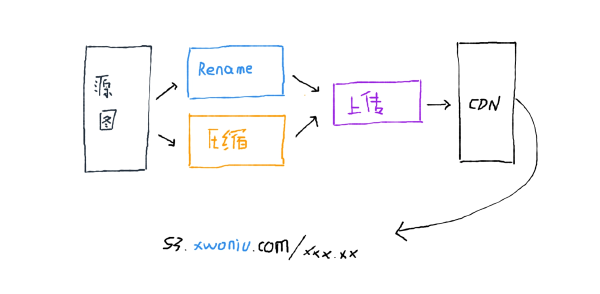 源
图
Rename
压缩
上传
CDN
s3.xwoniu.com/xxx.xx